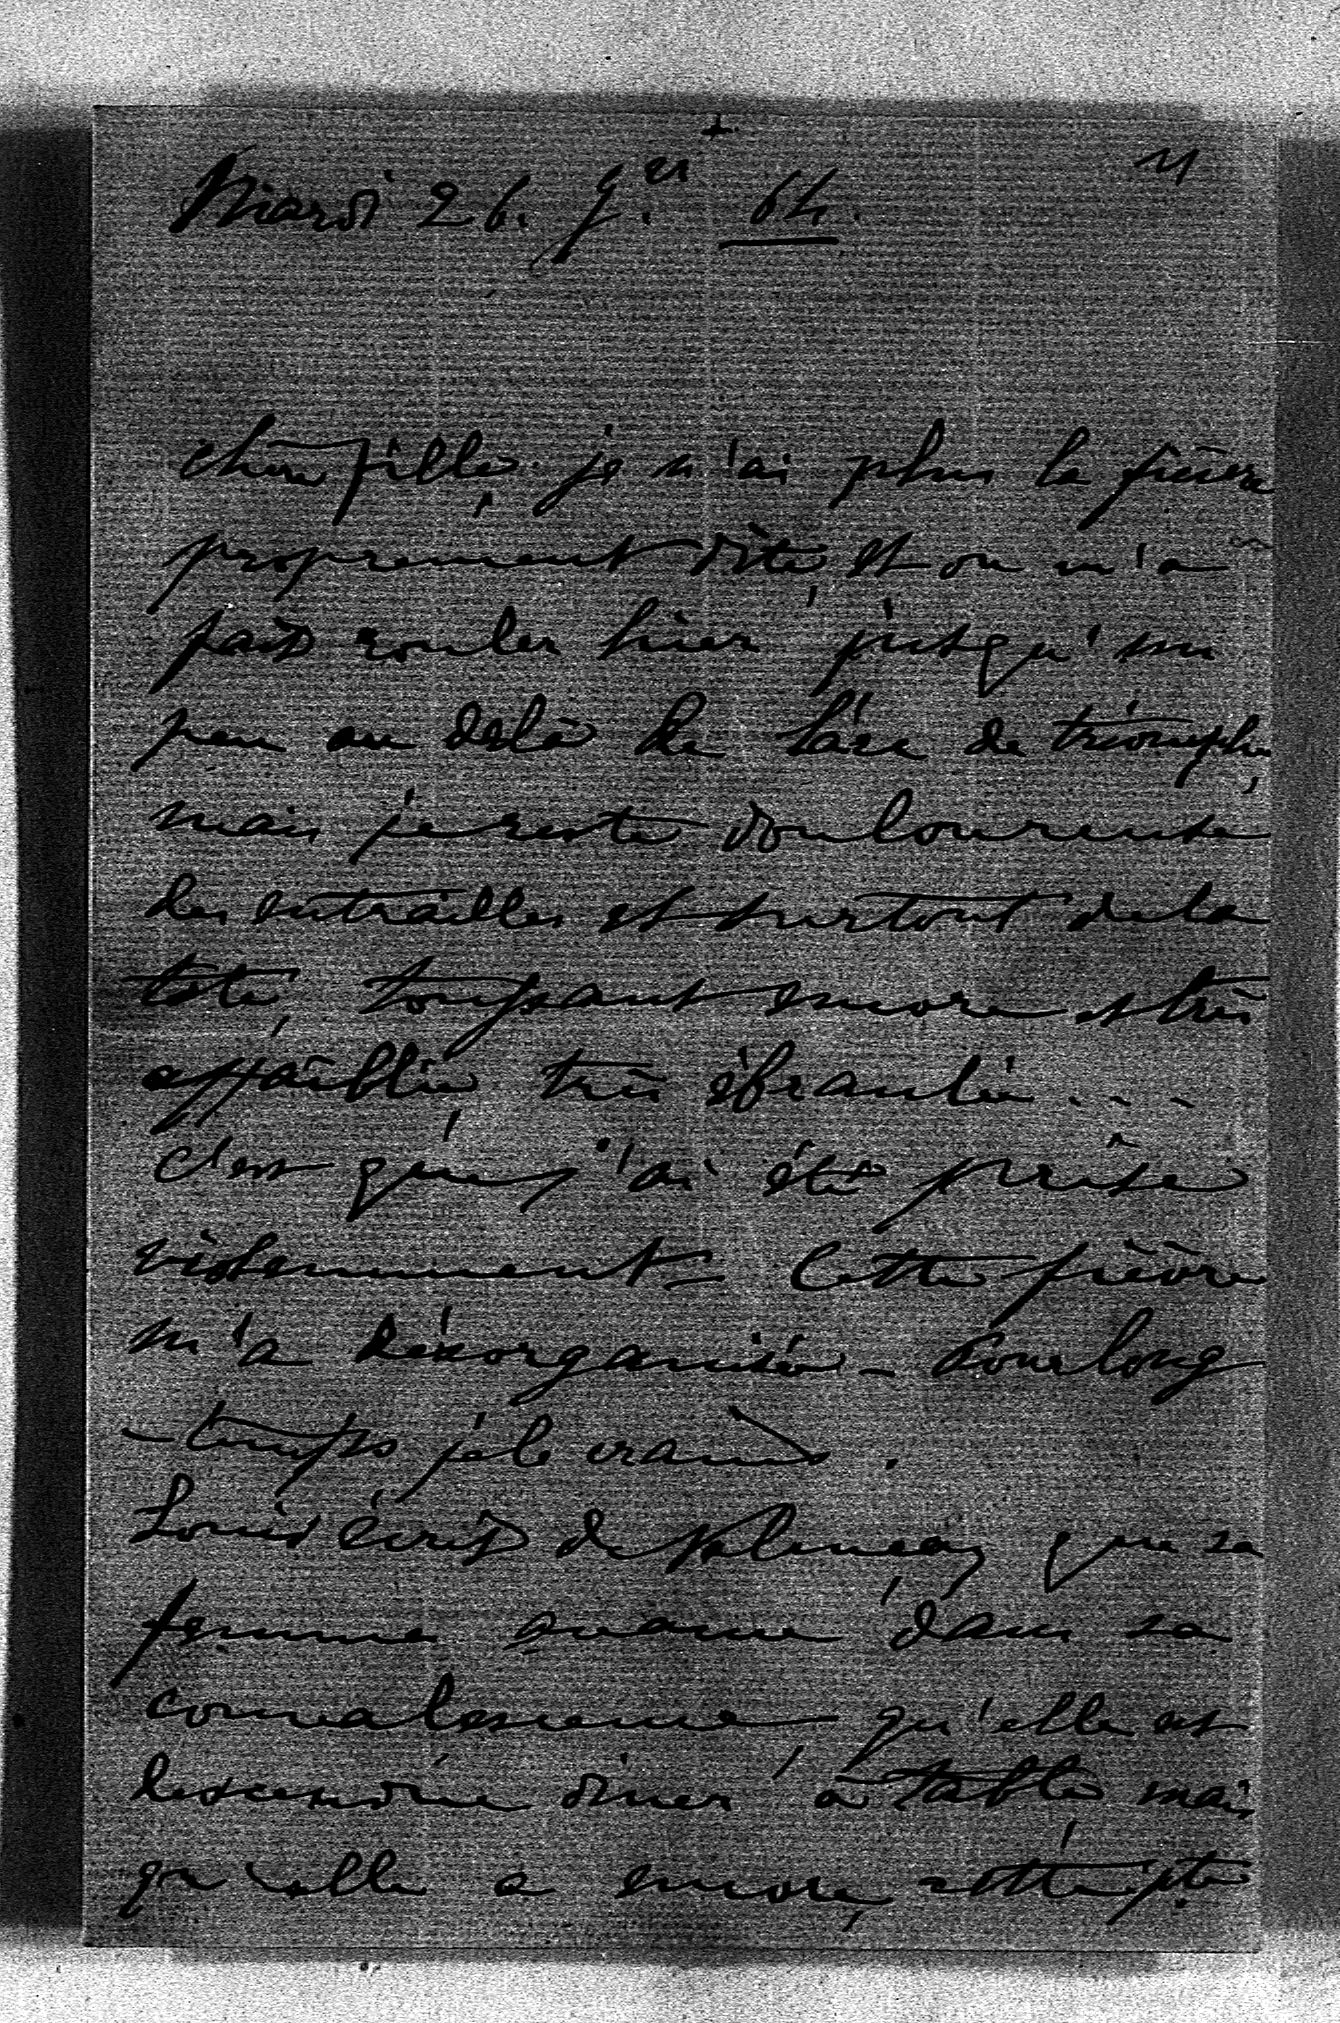 +
Mardi 26. J.er 64.
chère fille, je n'ai plus la fièvre
proprement dite, et on m'a
fait rouler hier jusqu'un
peu au delà de l'arc de triomphe,
mais je reste douloureuse
des entrailles et surtout de la
tête, toussant encore et très
affaiblie, très ébranlée...
c'est que j'ai été prise
violemment - Cette fièvre
m'a désorganisée - Pour long
-temps je le crains.
Louis écrit de Valençay, que sa
femme avance dans sa
convalescence, qu'elle est
descendue diner à table, mais
qu'elle a encore,